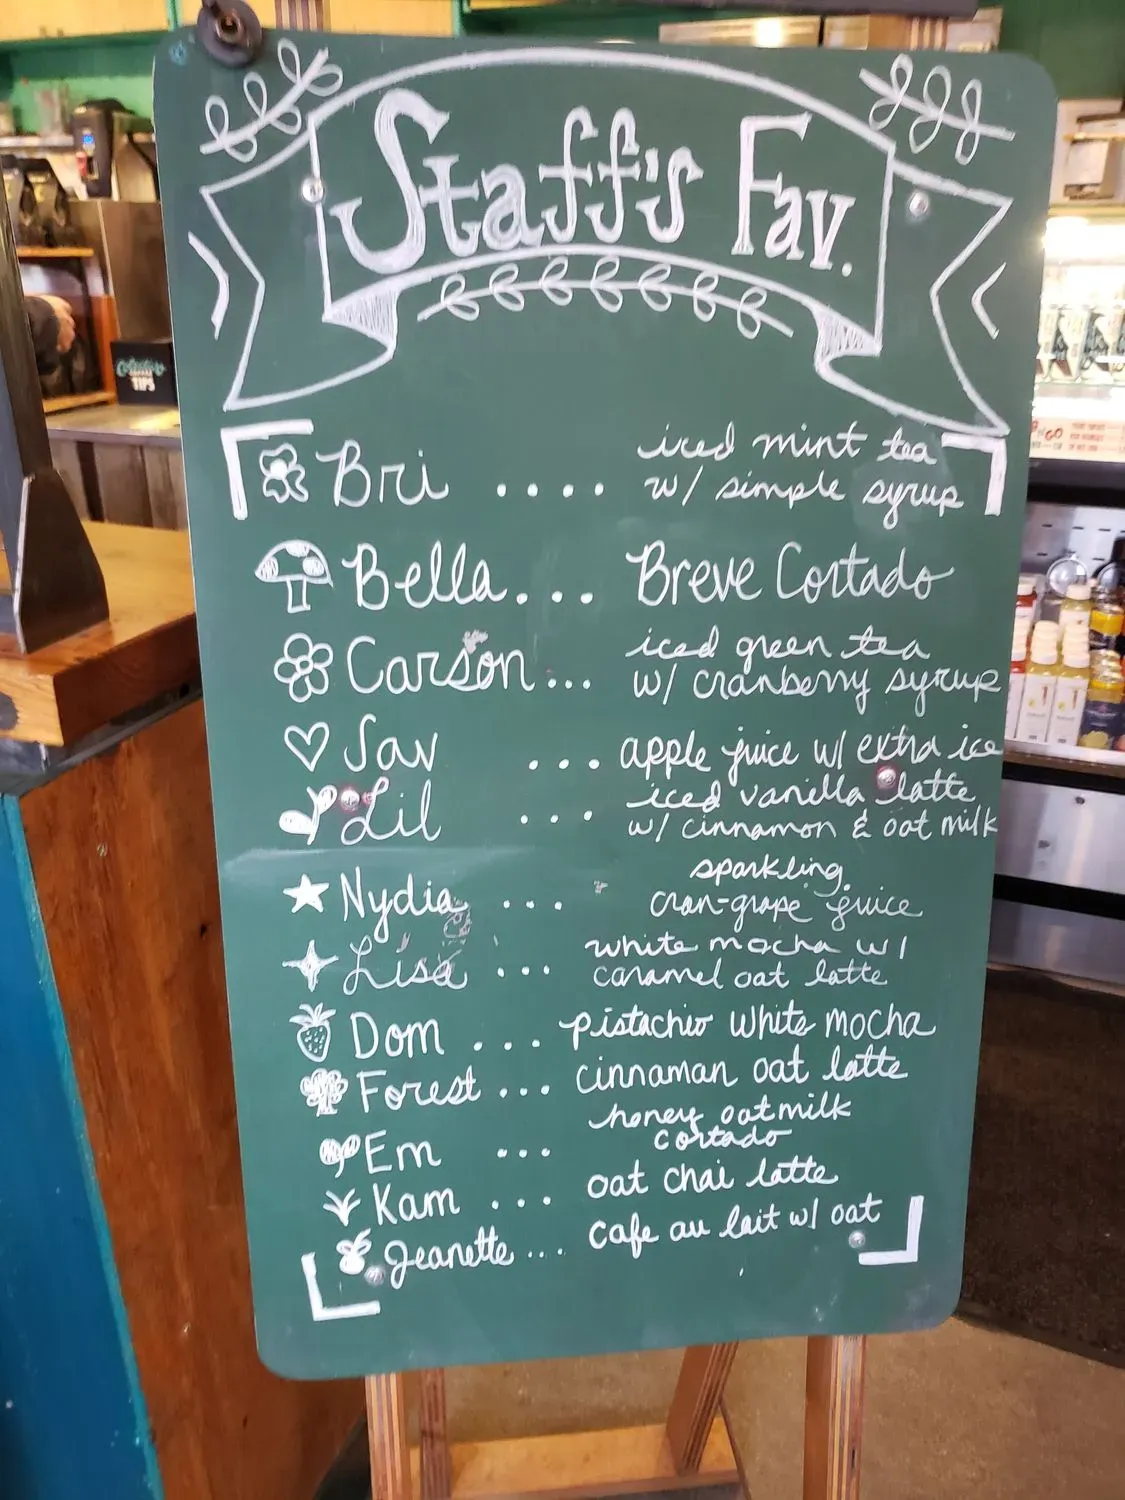 Staff's Fav.
Bri .... iced mint tea
w/ simple syrup
Bella... Breve Cortado
Carson... iced green tea
w/ cranberry syrup
Sav ... apple juice w/ extra ice
Lil ... iced vanilla latte
w/ cinnamon & oat milk
Nydia ... sparkling
cran-grape juice
Lisa ... white mocha w/
caramel oat latte
Dom ... pistachio white mocha
Forest ... cinnaman oat latte
Em ... honey oatmilk
cortado
Kam ... oat chai latte
Jeanette ... cafe au lait w/ oat
TIPS
GO